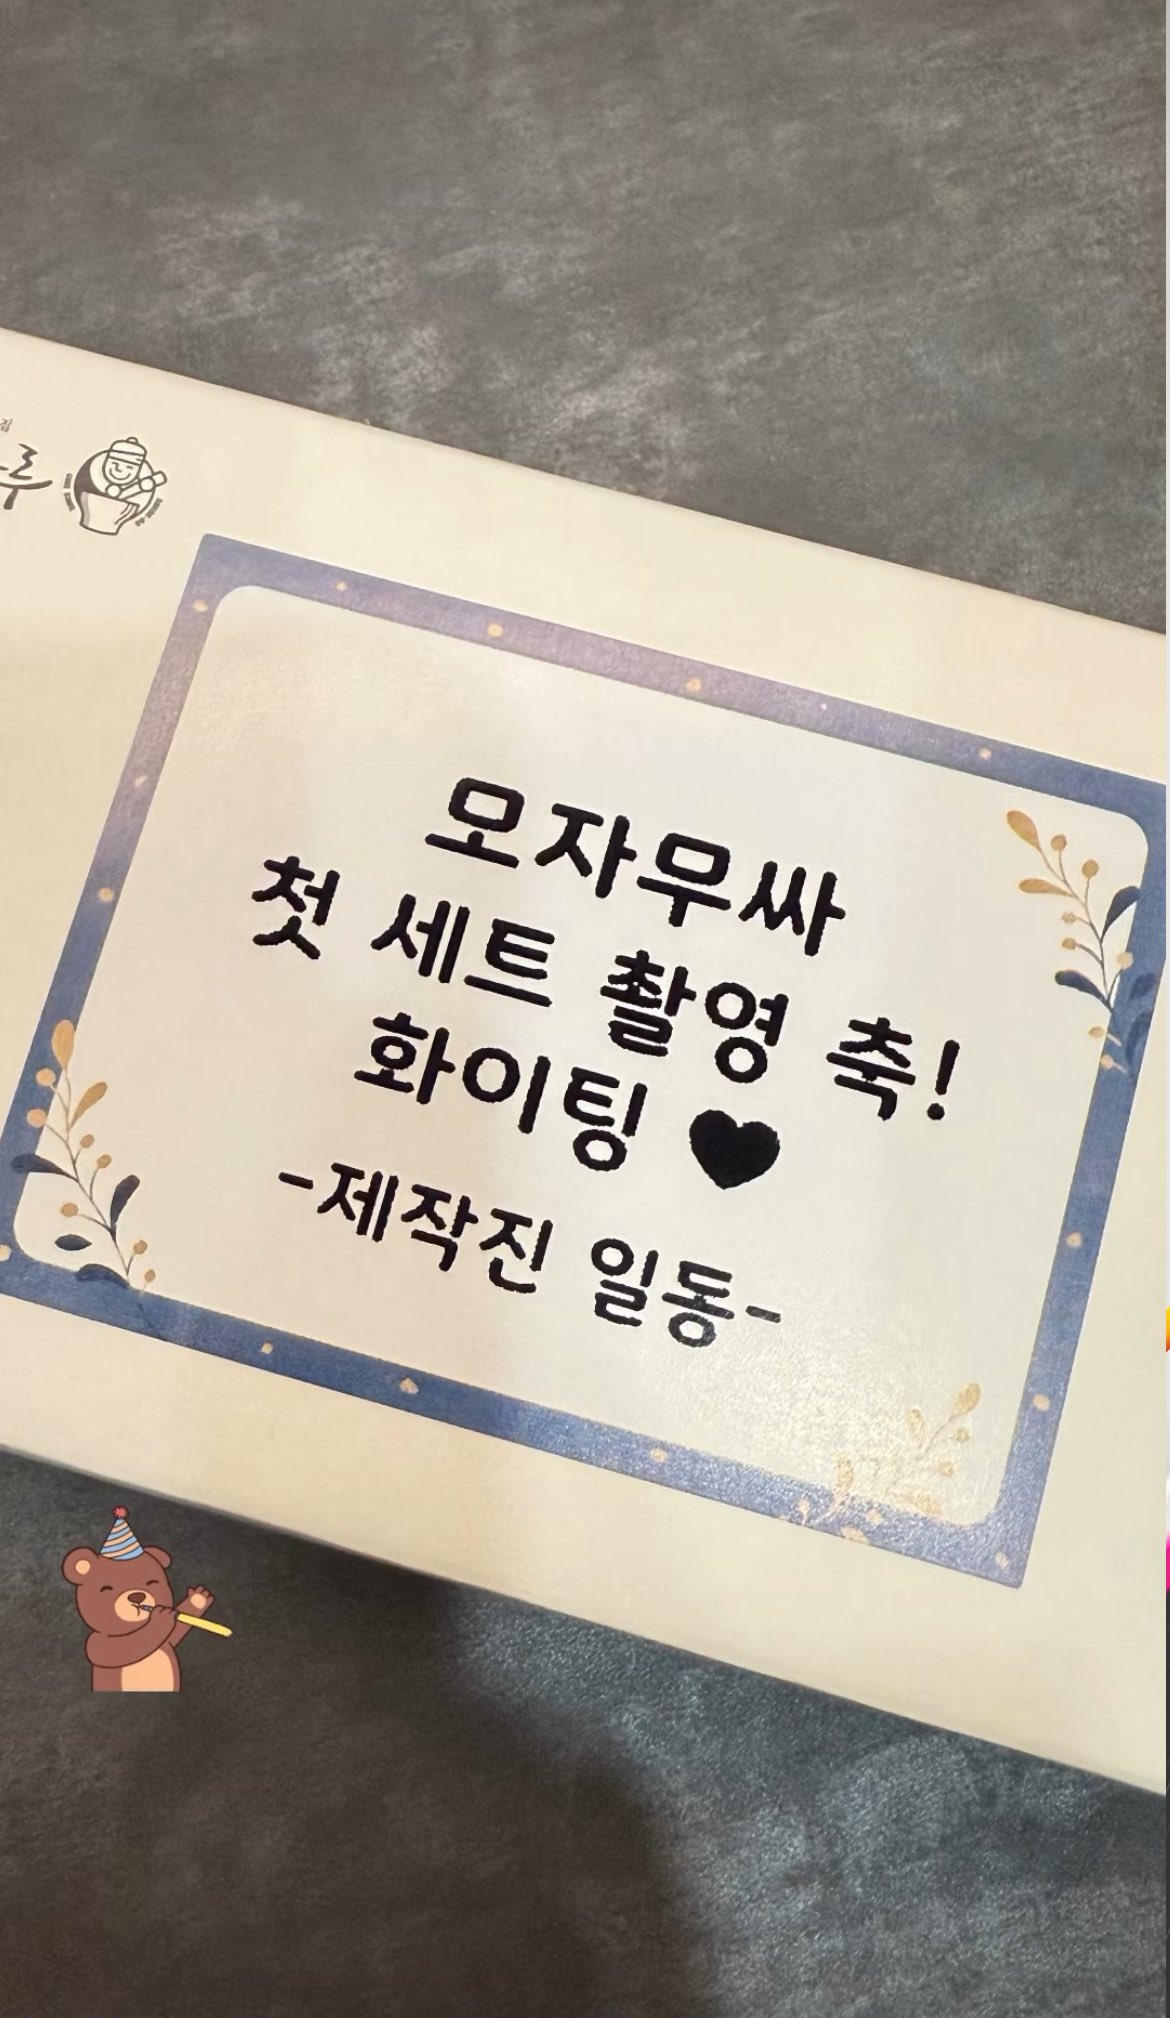 모자무싸
첫 세트 촬영 축!
화이팅 ♥
-제작진 일동-